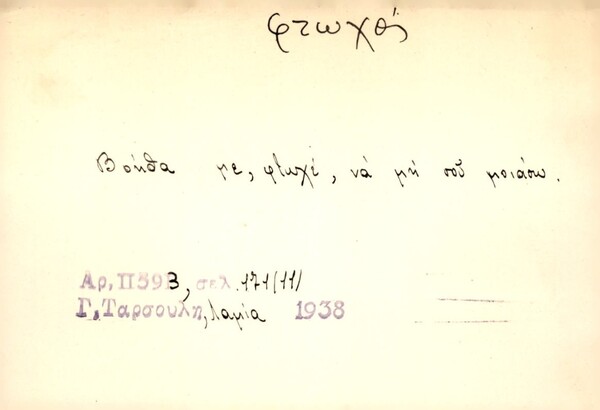 φτωχός
Βοήθα με, φτωχέ, νά μή σοῦ μοιάσω.
Αρ. Π59Β, σελ. 171 (11/
Γ. Ταρσουλη, Λαμία 1938